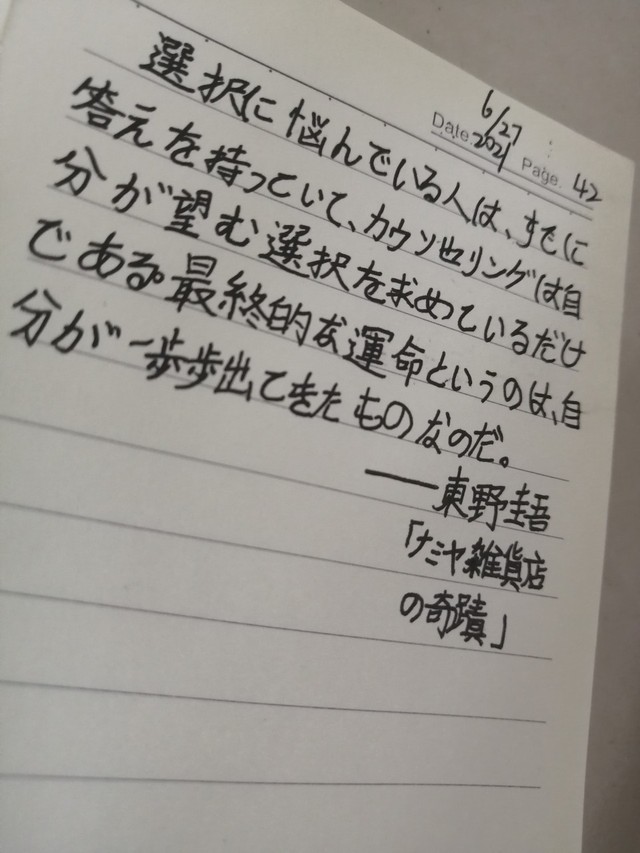 6/27
Date. 2021 Page. 42
選択に悩んでいる人は、すでに
答えを持っていて、カウンセリングは自
分が望む選択を求めているだけ
である。最終的な運命というのは、自
分が一歩歩出てきたものなのだ。
——東野圭吾
「ナミヤ雑貨店
の奇蹟」